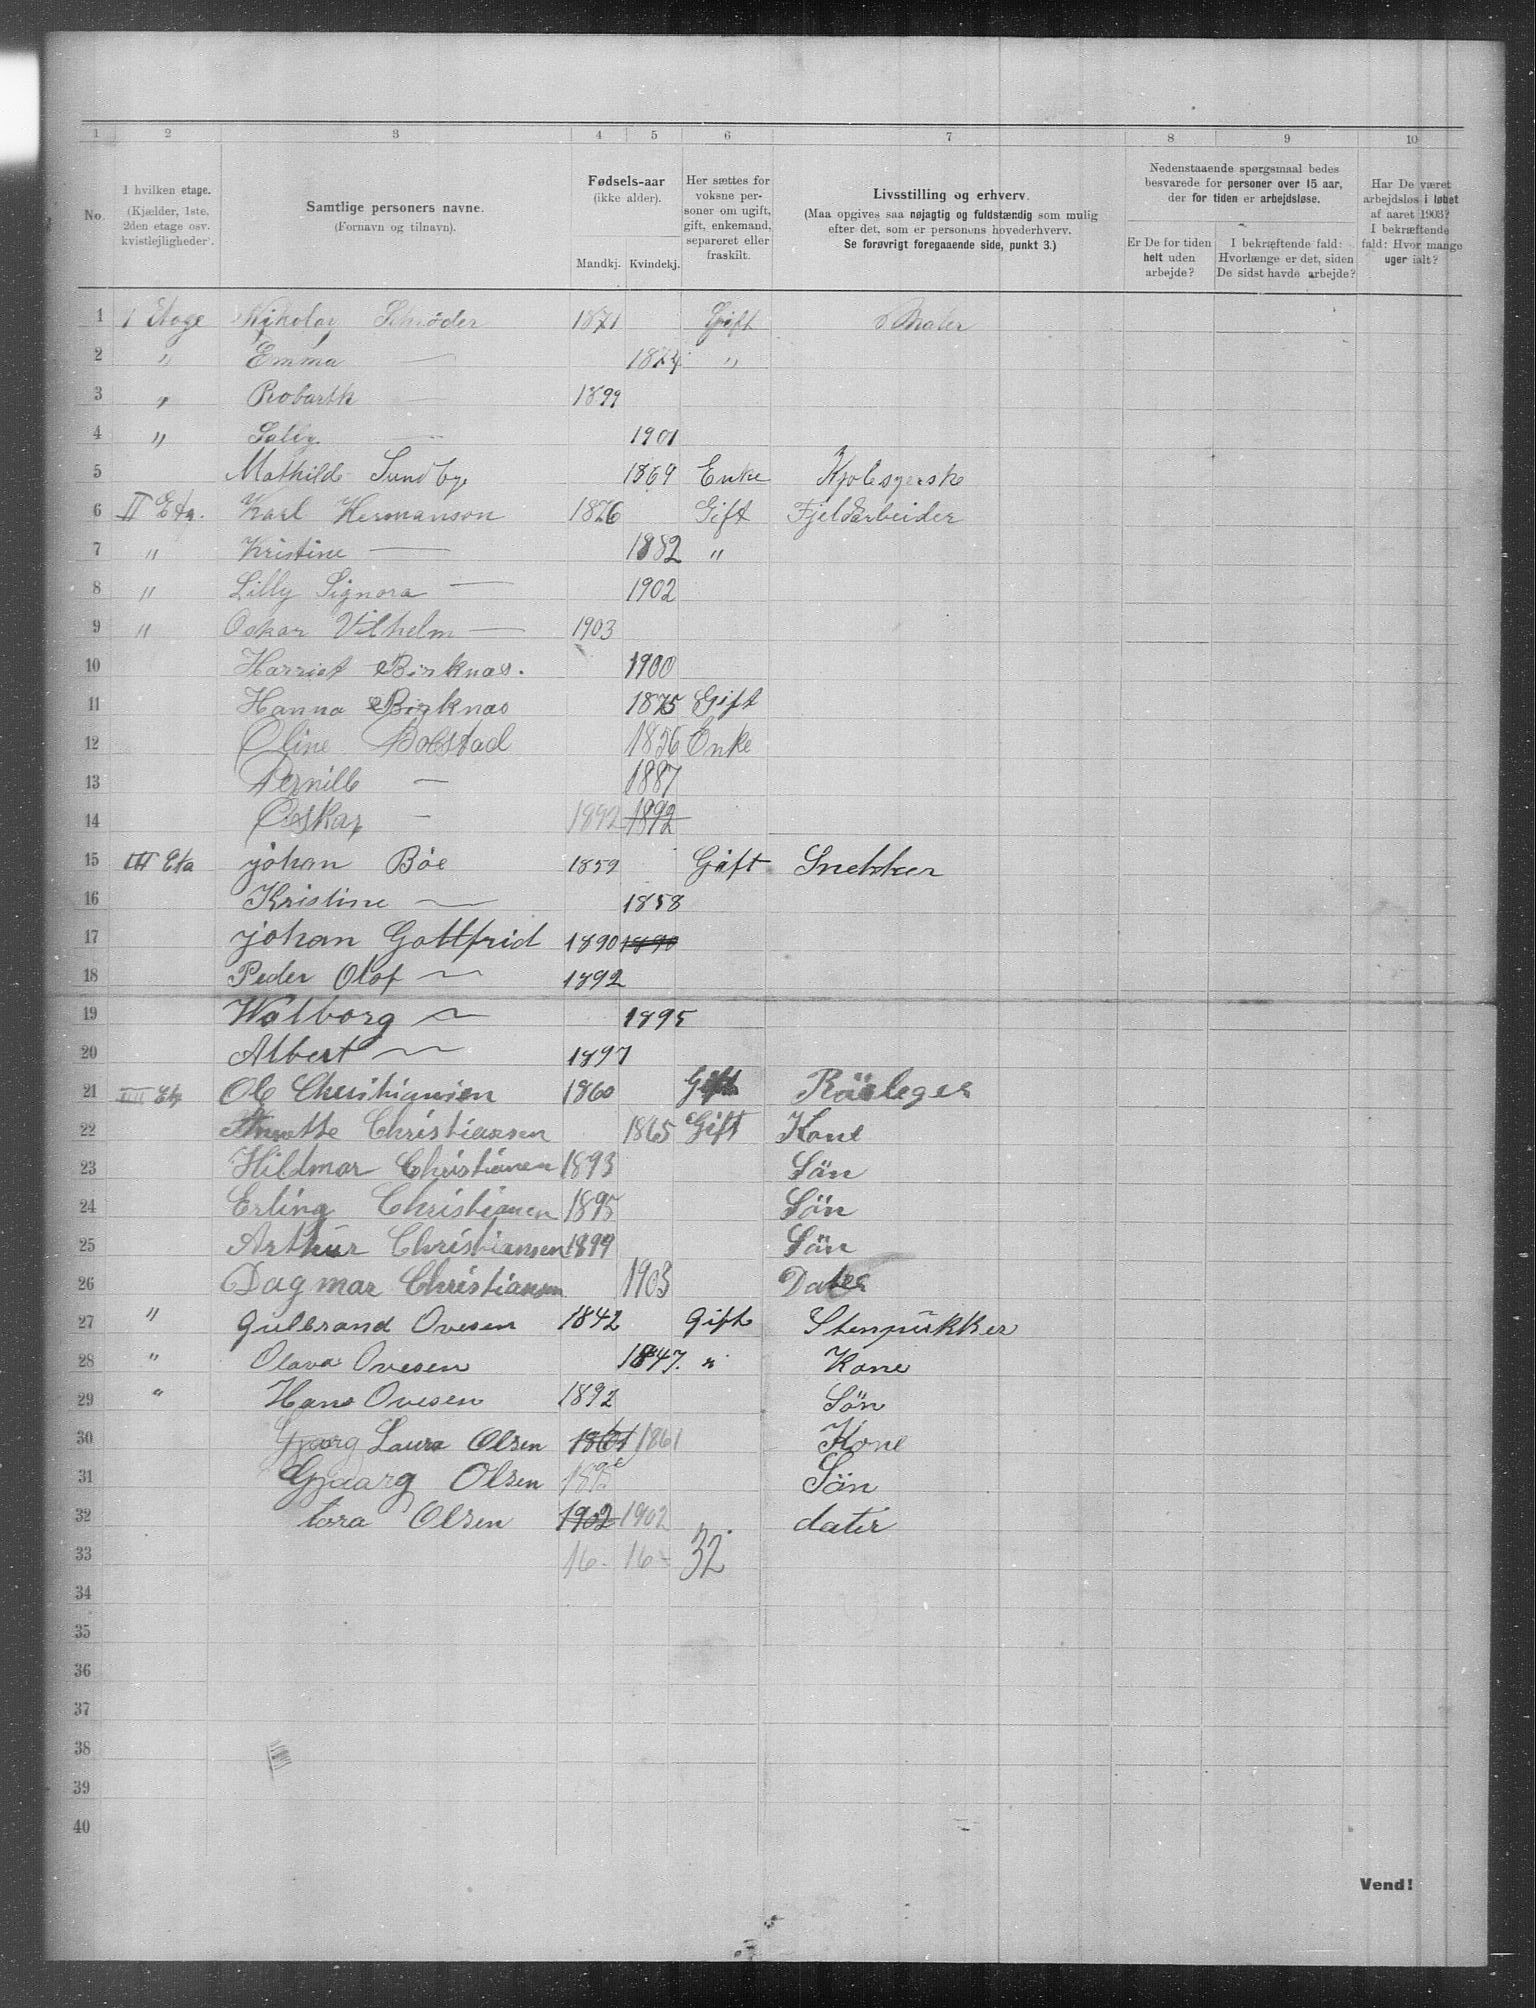 1 2 3 4 5 6 7 8 9 10
No.
I hvilken etage.
(Kjælder, 1ste,
2den etage osv.
kvistlejligheder).
Samtlige personers navne.
(Fornavn og tilnavn).
Fødsels-aar
(ikke alder).
Mandkj. Kvindekj.
Her sættes for
voksne per-
soner om ugift,
gift, enkemand,
separeret eller
fraskilt.
Livsstilling og erhverv.
(Maa opgives saa nøjagtig og fuldstændig som mulig
efter det, som er personens hovederhverv.
Se forøvrigt foregaaende side, punkt 3.)
Nedenstaaende spørgsmaal bedes
besvarede for personer over 15 aar,
der for tiden er arbejdsløse.
Er De for tiden
helt uden
arbejde?
I bekræftende fald:
Hvorlænge er det, siden
De sidst havde arbejde?
Har De været
arbejdsløs i løbet
af aaret 1903?
I bekræftende
fald: Hvor mange
uger ialt?
1 I Etage Nikolay Schrøder 1871 Gift Maler
2 " Emma — 1874 "
3 " Robarth — 1899
4 " Sally — 1901
5 Mathilde Sundbye 1869 Enke Kjolesyerske
6 II Etg. Karl Hermanson 1876 Gift Fjeldarbeider
7 " Kristine — 1882 "
8 " Lilly Signora — 1902
9 " Oskar Vilhelm — 1903
10 Harriet Birknas. 1900
11 Hanna Birknas 1875 Gift
12 Oline Bolstad 1856 Enke
13 Pernille — 1887
14 Oskar — 1892 1892
15 III Eta johan Böe 1859 Gift Snekker
16 Kristine — 1858
17 johan Gottfrid 1890 1890
18 Peder Olof — 1892
19 Walborg — 1895
20 Albert — 1897
21 III Etg Ole Christiansen 1860 Gift Rörleger
22 Annette Christiansen 1865 Gift Kone
23 Hildmar Christiansen 1893 Sön
24 Erling Christiansen 1895 Sön
25 Arthur Christiansen 1899 Sön
26 Dagmar Christiansen 1903 Dater
27 " Gulbrand Ovesen 1842 Gift Stenpukker
28 " Olava Ovesen 1847. " Kone
29 " Hans Ovesen 1892 Sön
30 Laura Olsen 1861 1861 Kone
31 Gjaarg Olsen Sön
32 tora Olsen 1902 1902 dater
33 16- 16- 32
34
35
36
37
38
39
40
Vend!